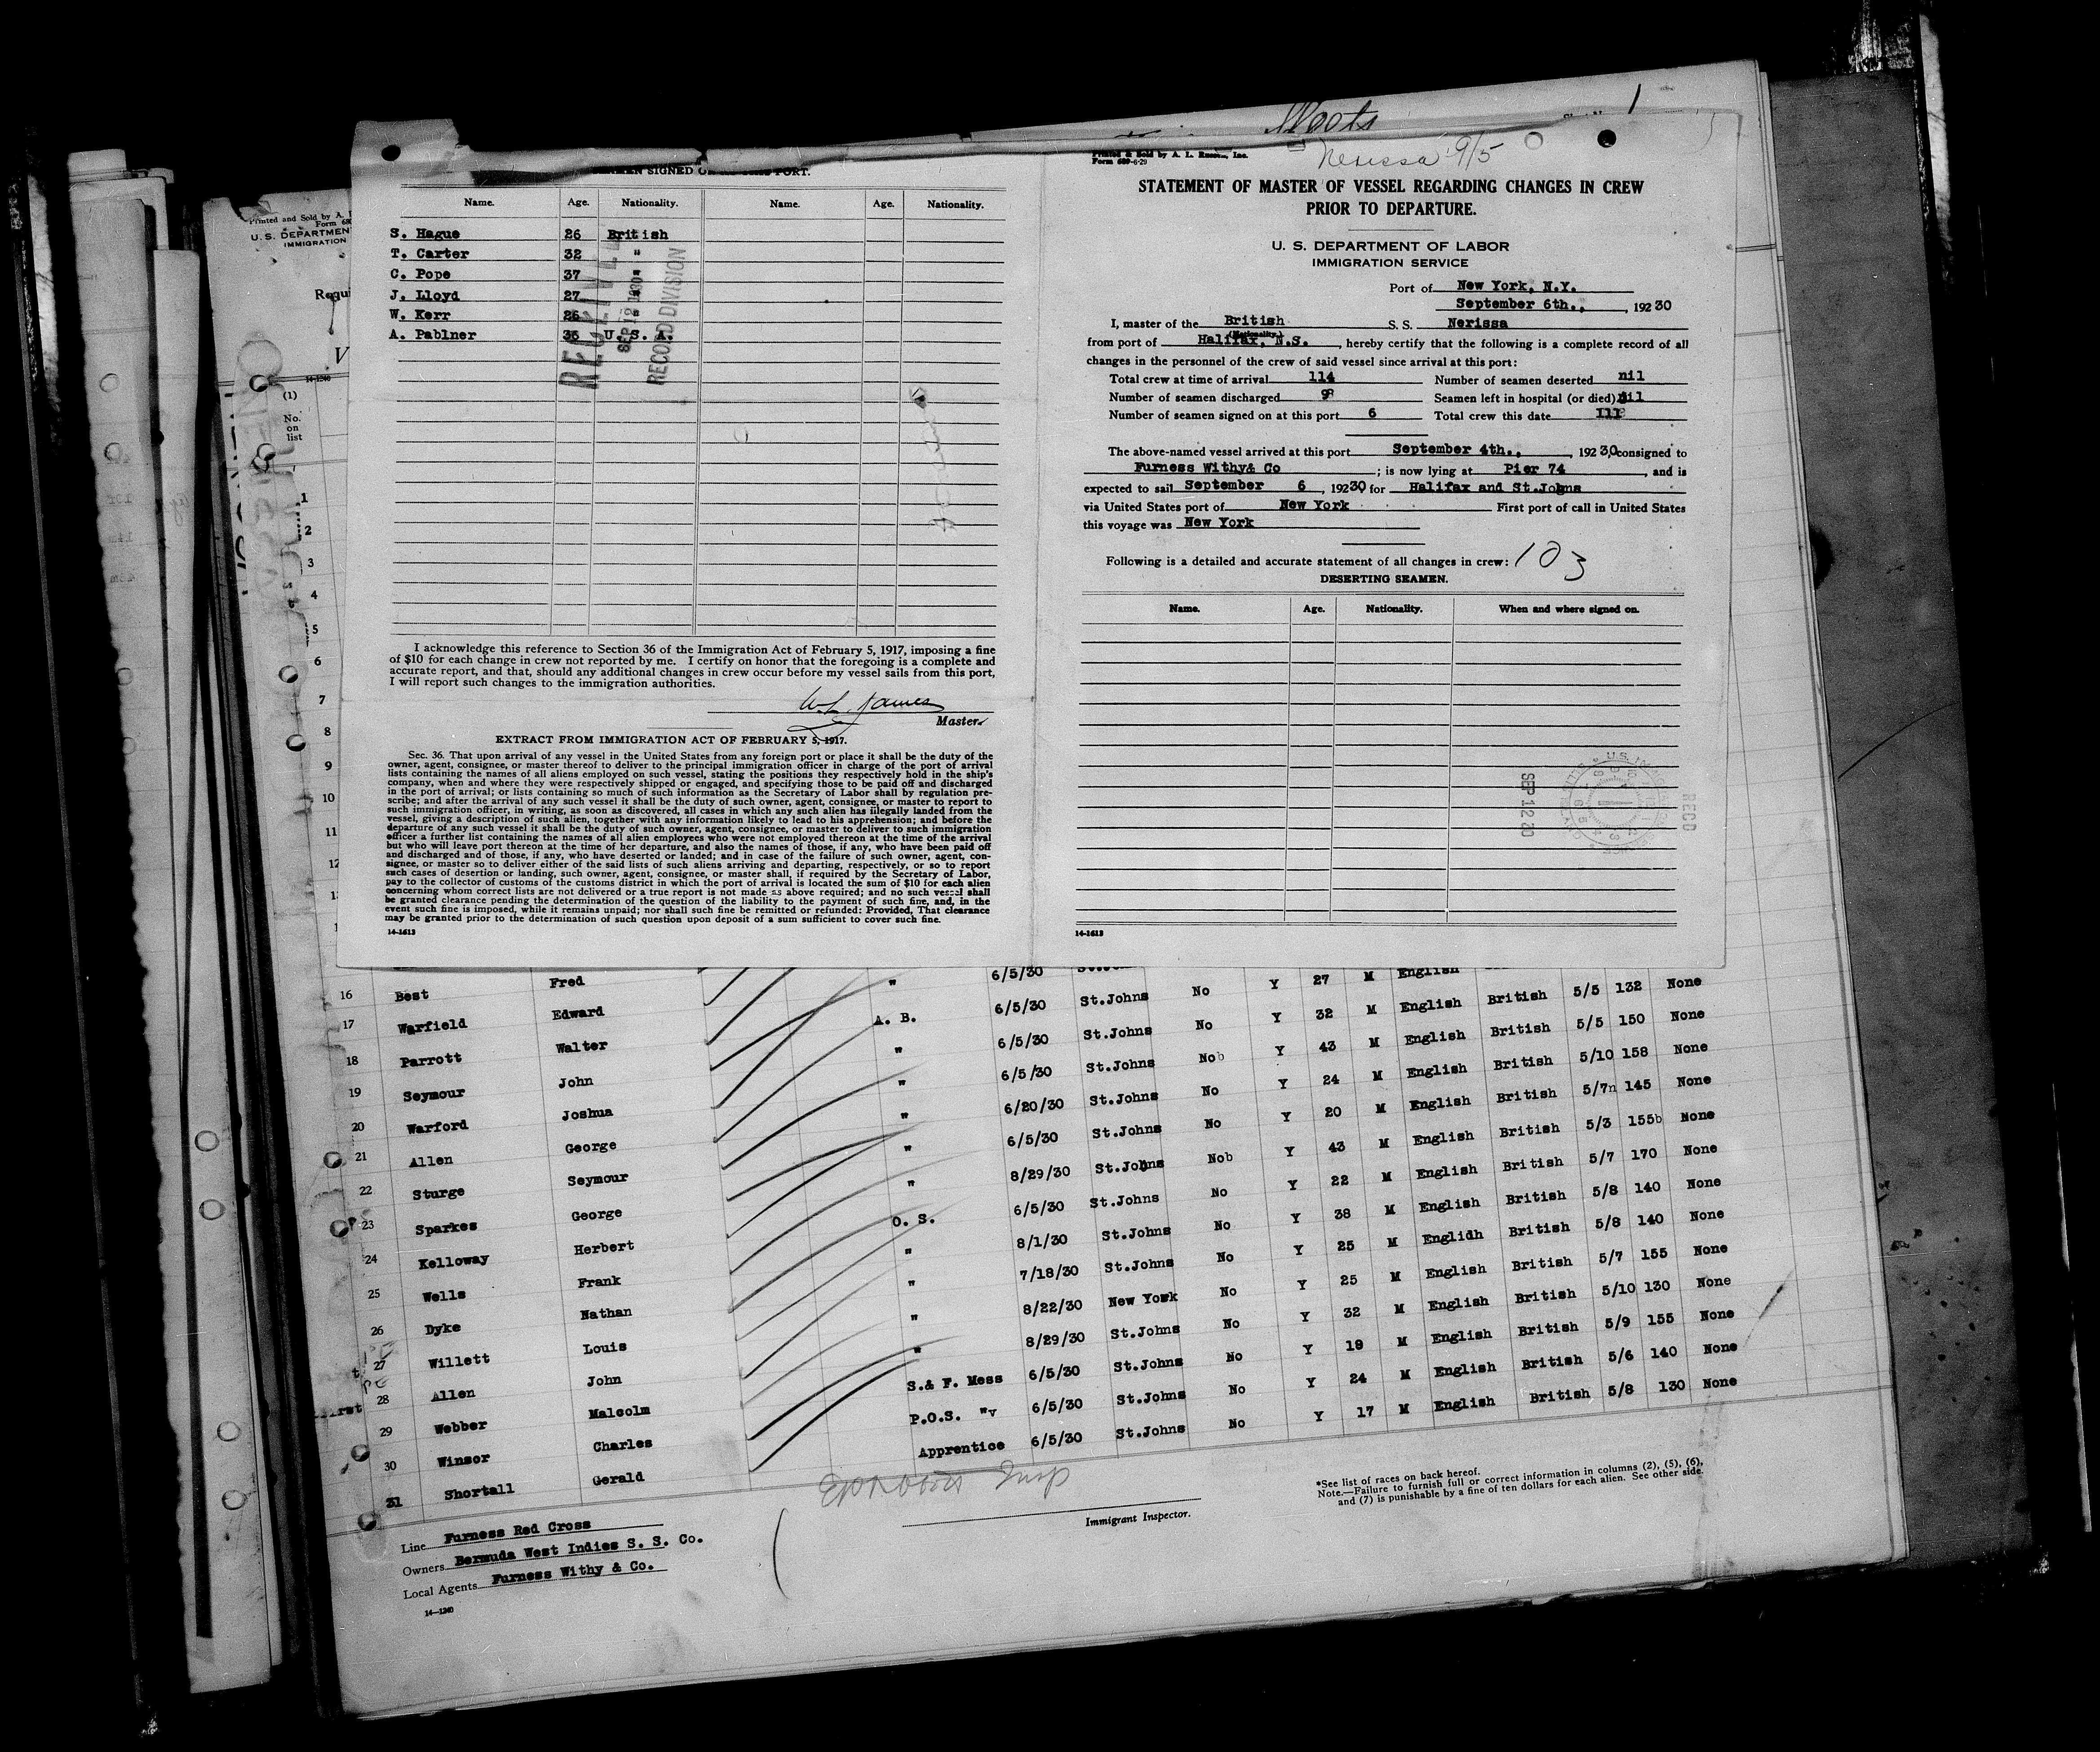 SEAMEN SIGNED PORT.
Name. Age. Nationality. Name. Age. Nationality.
S. Hague 26 British
T. Carter 32 "
C. Pope 37 "
J. Lloyd 27 "
W. Kerr 26 "
A. Pablner 36 U. S. A.
RECEIVED
SEP 12 1930
RECORD DIVISION
I acknowledge this reference to Section 36 of the Immigration Act of February 5, 1917, imposing a fine
of $10 for each change in crew not reported by me. I certify on honor that the foregoing is a complete and
accurate report, and that, should any additional changes in crew occur before my vessel sails from this port,
I will report such changes to the immigration authorities.
W.L. James
Master.
EXTRACT FROM IMMIGRATION ACT OF FEBRUARY 5, 1917.
Sec. 36. That upon arrival of any vessel in the United States from any foreign port or place it shall be the duty of the
owner, agent, consignee, or master thereof to deliver to the principal immigration officer in charge of the port of arrival
lists containing the names of all aliens employed on such vessel, stating the positions they respectively hold in the ship's
company, when and where they were respectively shipped or engaged, and specifying those to be paid off and discharged
in the port of arrival; or lists containing so much of such information as the Secretary of Labor shall by regulation pre-
scribe; and after the arrival of any such vessel it shall be the duty of such owner, agent, consignee, or master to report to
such immigration officer, in writing, as soon as discovered, all cases in which any such alien has illegally landed from the
vessel, giving a description of such alien, together with any information likely to lead to his apprehension; and before the
departure of any such vessel it shall be the duty of such owner, agent, consignee, or master to deliver to such immigration
officer a further list containing the names of all alien employees who were not employed thereon at the time of the arrival
but who will leave port thereon at the time of her departure, and also the names of those, if any, who have been paid off
and discharged and of those, if any, who have deserted or landed; and in case of the failure of such owner, agent, con-
signee, or master so to deliver either of the said lists of such aliens arriving and departing, respectively, or so to report
such cases of desertion or landing, such owner, agent, consignee, or master shall, if required by the Secretary of Labor,
pay to the collector of customs of the customs district in which the port of arrival is located the sum of $10 for each alien
concerning whom correct lists are not delivered or a true report is not made as above required; and no such vessel shall
be granted clearance pending the determination of the question of the liability to the payment of such fine, and, in the
event such fine is imposed, while it remains unpaid; nor shall such fine be remitted or refunded: Provided, That clearance
may be granted prior to the determination of such question upon deposit of a sum sufficient to cover such fine.
14-1613
1
Printed & Sold by A. L. Russell, Inc.
Form 689-6-29
Nerissa 9/5
STATEMENT OF MASTER OF VESSEL REGARDING CHANGES IN CREW
PRIOR TO DEPARTURE.
U. S. DEPARTMENT OF LABOR
IMMIGRATION SERVICE
Port of New York, N.Y.
September 6th., , 192 30
I, master of the British S. S. Nerissa
(Nationality.)
from port of Halifax, N.S. , hereby certify that the following is a complete record of all
changes in the personnel of the crew of said vessel since arrival at this port:
Total crew at time of arrival 114 Number of seamen deserted nil
Number of seamen discharged Seamen left in hospital (or died) nil
Number of seamen signed on at this port 6 Total crew this date
The above-named vessel arrived at this port September 4th., , 192 30 consigned to
Furness Withy& Co ; is now lying at Pier 74 , and is
expected to sail September 6 , 192 30 for Halifax and St.Johns
via United States port of New York First port of call in United States
this voyage was New York
Following is a detailed and accurate statement of all changes in crew: 103
DESERTING SEAMEN.
Name. Age. Nationality. When and where signed on.
SEP 12 30
RECD
14-1613
Printed and Sold by A.
U. S. DEPARTMENT
IMMIGRATION
14-1240
(1)
No.
on
list
1
2
3
4
5
6
7
8
9
10
11
12
16 Best Fred " 6/5/30 27 M English
17 Warfield Edward A. B. 6/5/30 St.Johns No Y 32 M English British 5/5 132 None
18 Parrott Walter " 6/5/30 St.Johns No Y 43 M English British 5/5 150 None
19 Seymour John " 6/5/30 St.Johns No Y 24 M English British 5/10 158 None
20 Warford Joshua " 6/20/30 St.Johns No Y 20 M English British 5/7 145 None
21 Allen George " 6/5/30 St.Johns No Y 43 M English British 5/3 155 None
22 Sturge Seymour " 8/29/30 St.Johns No Y 22 M English British 5/7 170 None
23 Sparkes George O. S. 6/5/30 St.Johns No Y 38 M English British 5/8 140 None
24 Kelloway Herbert " 8/1/30 St.Johns No Y 25 M Englidh British 5/8 140 None
25 Wells Frank " 7/18/30 St.Johns No Y 25 M English British 5/7 155 None
26 Dyke Nathan " 8/22/30 New York No Y 32 M English British 5/10 130 None
27 Willett Louis " 8/29/30 St.Johns No Y 19 M English British 5/9 155 None
28 Allen John S.& F. Mess 6/5/30 St.Johns No Y 24 M English British 5/6 140 None
29 Webber Malcolm P.O.S. " 6/5/30 St.Johns No Y 17 M English British 5/8 130 None
30 Winsor Charles Apprentice 6/5/30 St.Johns No
31 Shortall Gerald
Insp
Immigrant Inspector.
*See list of races on back hereof.
Note.—Failure to furnish full or correct information in columns (2), (5), (6),
and (7) is punishable by a fine of ten dollars for each alien. See other side.
Line Furness Red Cross
Owners Bermuda West Indies S. S. Co.
Local Agents Furness Withy & Co.
14—1240